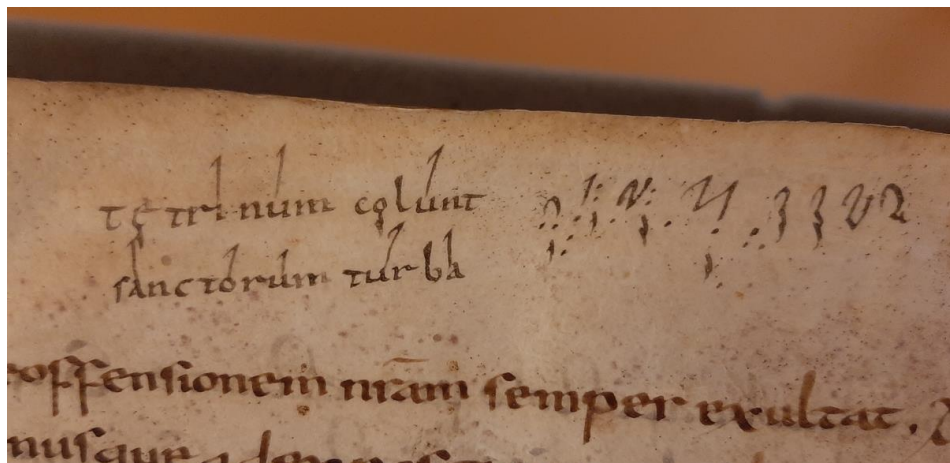 te trinum colunt
sanctorum turba
offensionem nr̄am semper exultat.